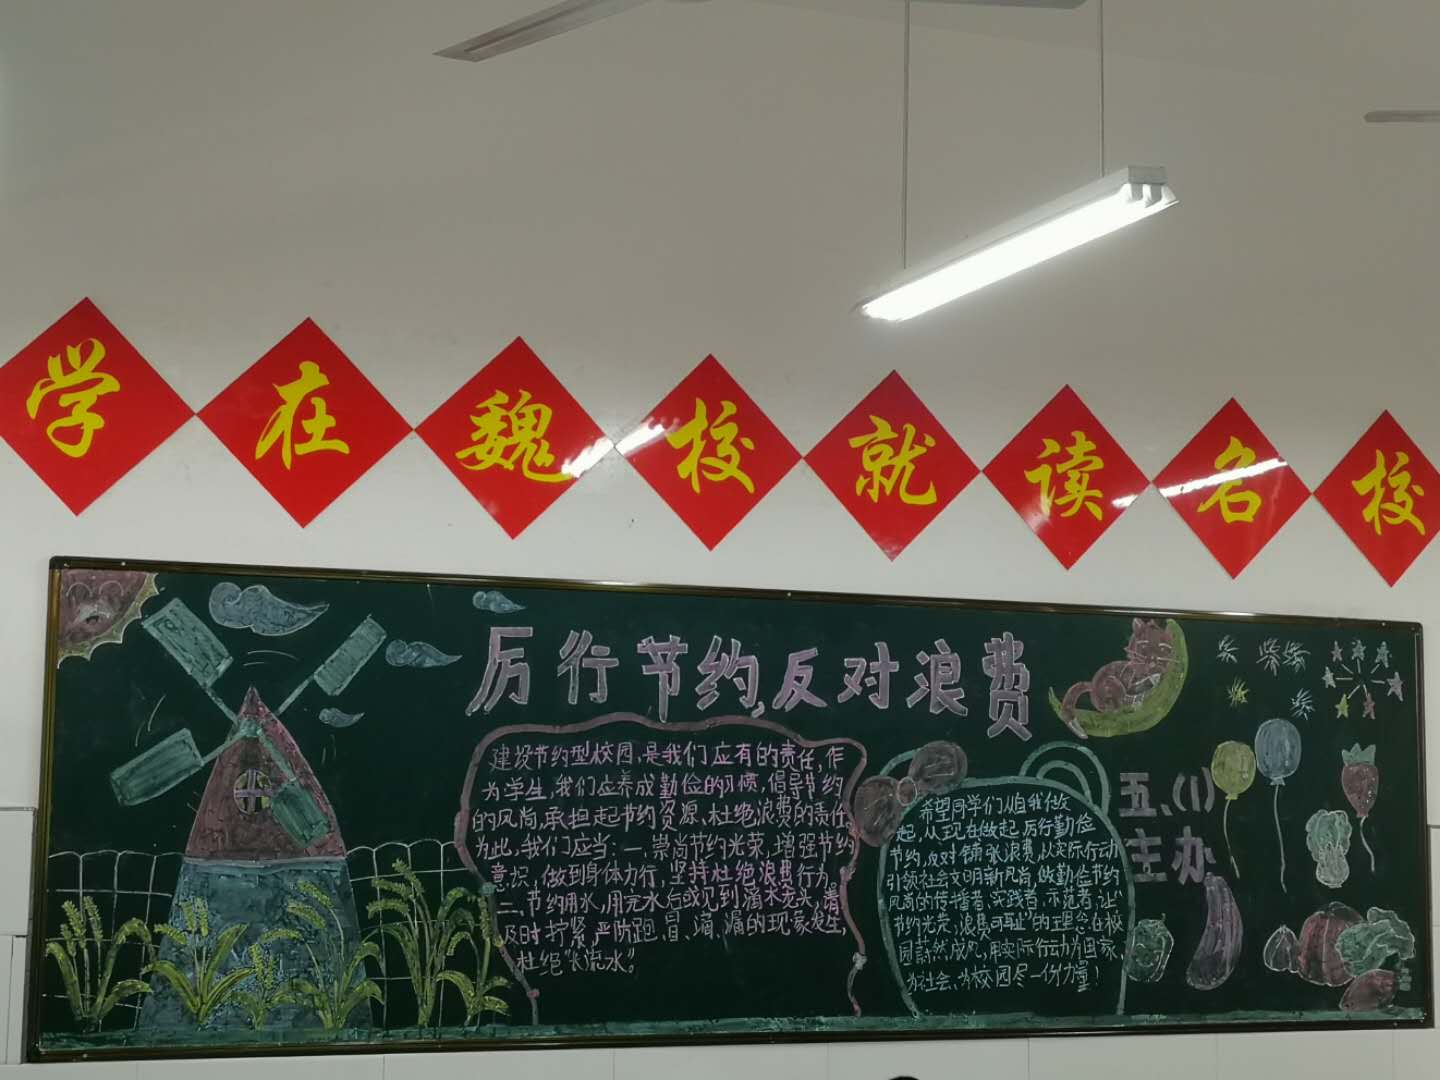 学在魏校就读名校
厉行节约,反对浪费
建设节约型校园,是我们应有的责任,作
为学生,我们应养成勤俭的习惯,倡导节约
的风尚,承担起节约资源、杜绝浪费的责任。
为此,我们应当:一、崇尚节约光荣,增强节约
意识,做到身体力行,坚持杜绝浪费行为。
二、节约用水,用完水后或见到滴水龙头,请
及时拧紧,严防跑、冒、滴、漏的现象发生,
杜绝“长流水”。
希望同学们从自我做
起,从现在做起,厉行勤俭
节约,反对铺张浪费,从实际行动
引领社会文明新风尚,做勤俭节约
风尚的传播者、实践者、示范者,让“
节约光荣,浪费可耻”的理念在校
园蔚然成风,用实际行动为国家、
为社会、为校园尽一份力量!
五、(1)
主办